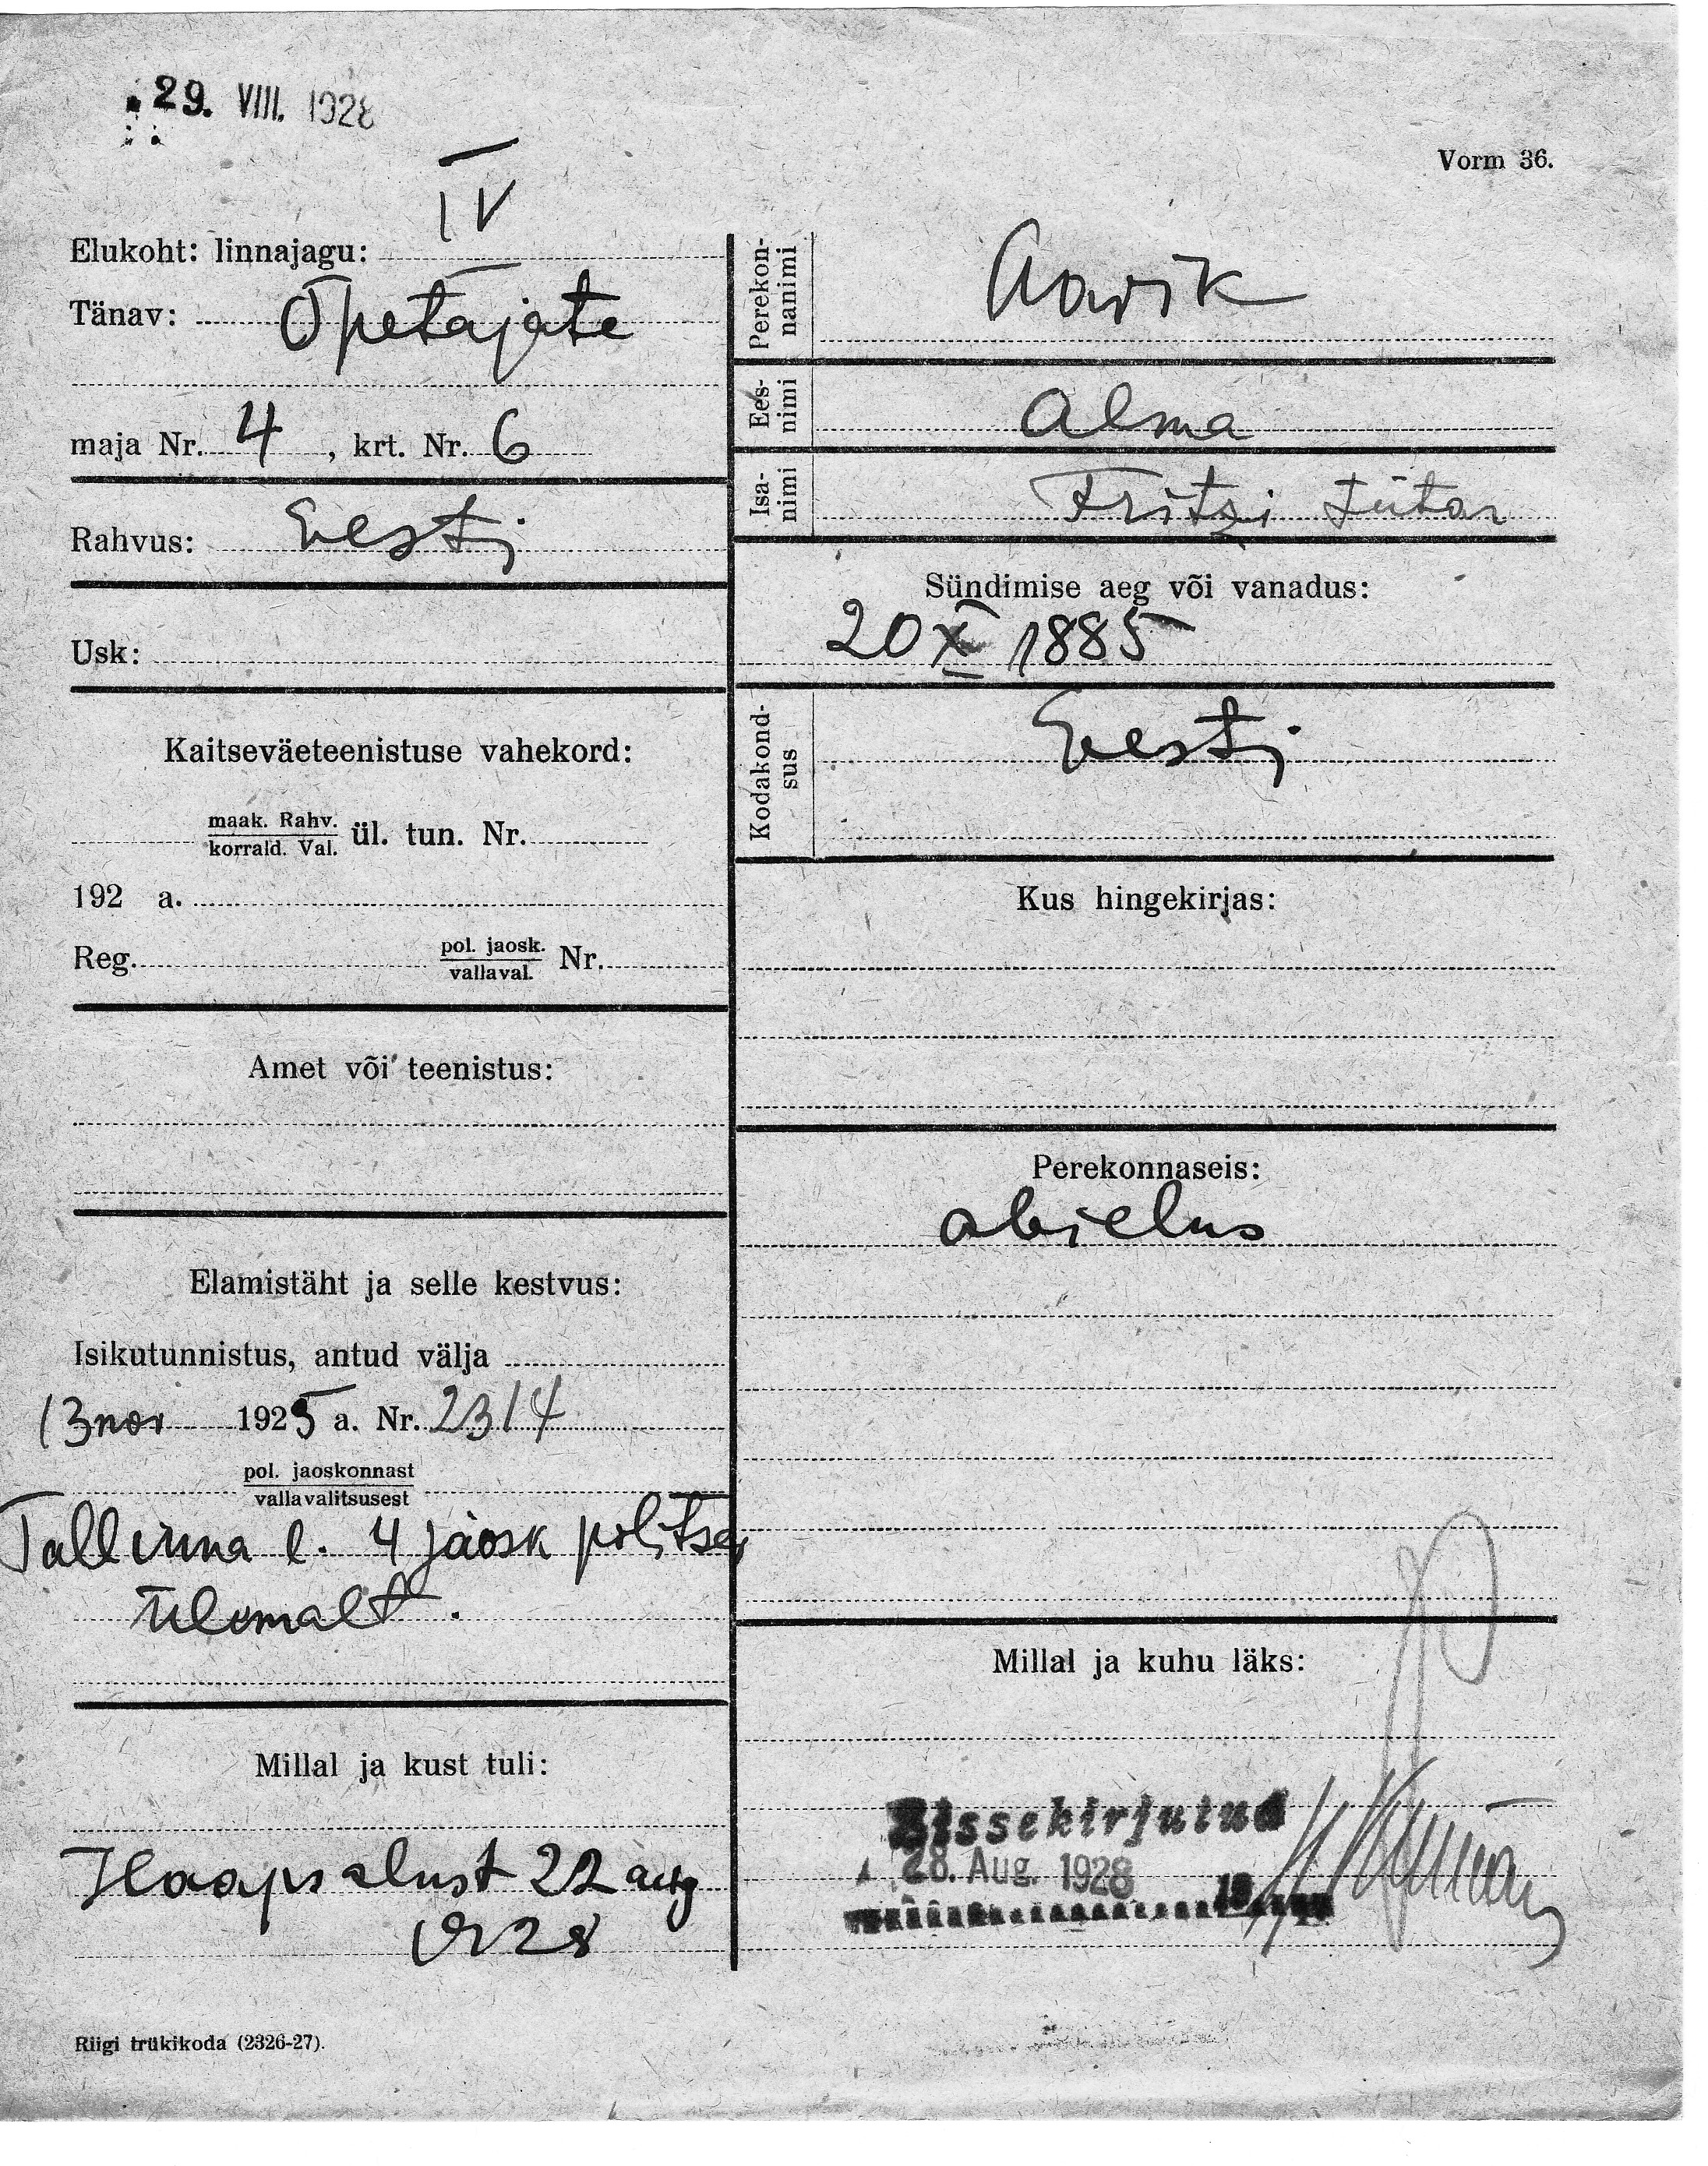 29. VIII. 1928
Vorm 36.
Elukoht: linnajagu: IV
Tänav: Õpetajate
maja Nr. 4, krt. Nr. 6
Rahvus: Eesti
Usk:
Kaitseväeteenistuse vahekord:
maak. Rahv.
korrald. Val. ül. tun. Nr.
192 a.
Reg. pol. jaosk.
vallaval. Nr.
Amet või teenistus:
Elamistäht ja selle kestvus:
Isikutunnistus, antud välja
13 nov 1925 a. Nr. 2314
pol. jaoskonnast
vallavalitsusest
Tallinna l. 4 jaosk politsei
ülemalt.
Millal ja kust tuli:
Haapsalust 22 aug
1928
Riigi trükikoda (2326-27).
Perekon-
nanimi Aavik
Ees-
nimi Alma
Isa-
nimi Fritzi tütar
Sündimise aeg või vanadus:
20 X 1885
Kodakond-
sus Eesti
Kus hingekirjas:
Perekonnaseis:
abielus
Millal ja kuhu läks:
Sissekirjutud
28. Aug. 1928
19